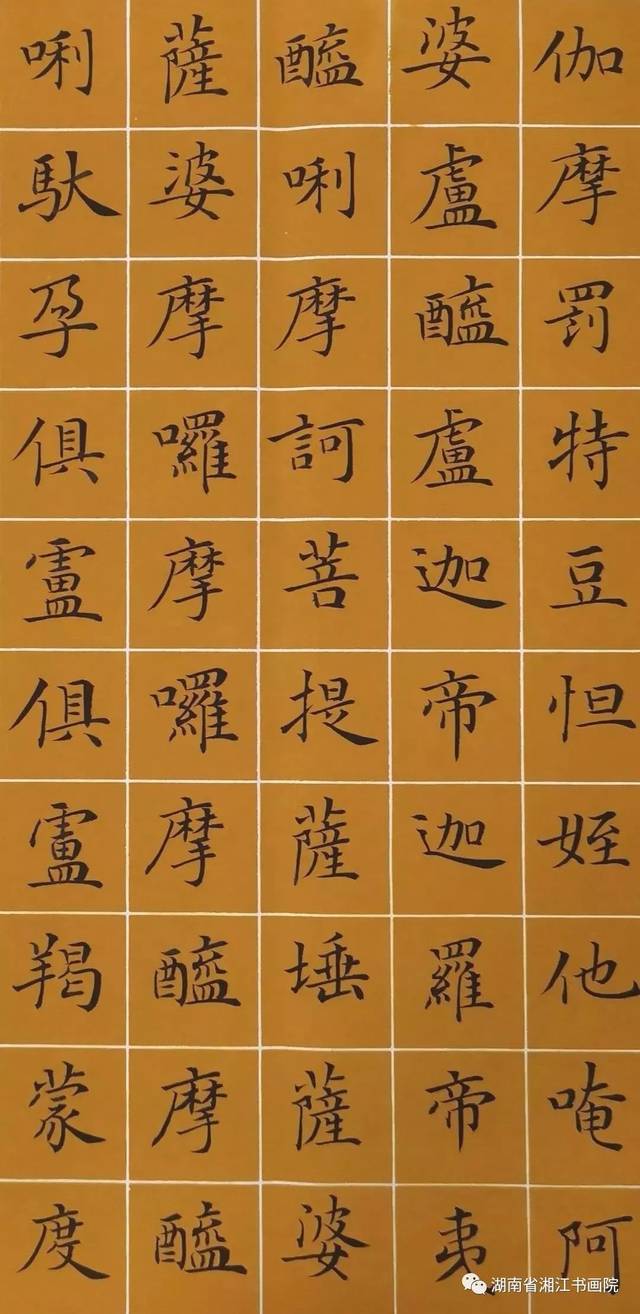 伽摩罰特豆怛姪他唵阿
婆盧醯盧迦帝迦羅帝夷
醯唎摩訶菩提薩埵薩婆
薩婆摩囉摩囉摩醯摩醯
唎馱孕俱盧俱盧羯蒙度
湖南省湘江书画院